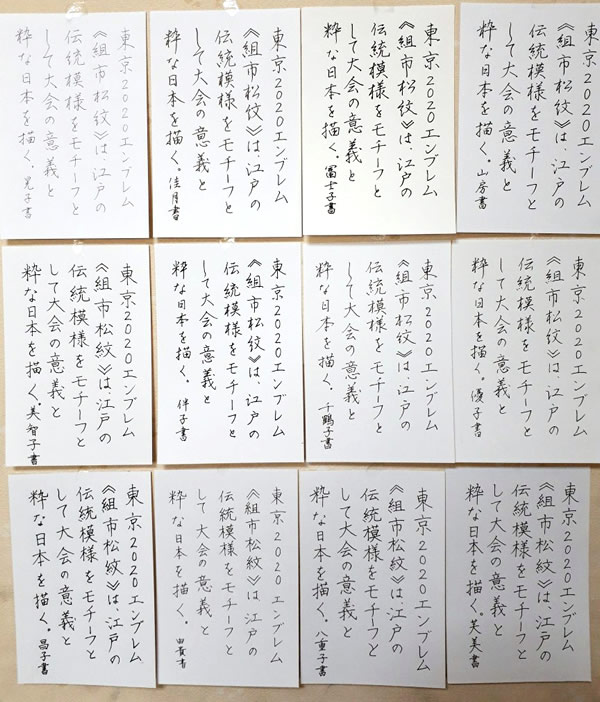 東京2020エンブレム
《組市松紋》は、江戸の
伝統模様をモチーフと
して大会の意義と
粋な日本を描く。晃子書
東京2020エンブレム
《組市松紋》は、江戸の
伝統模様をモチーフと
して大会の意義と
粋な日本を描く。佳月書
東京2020エンブレム
《組市松紋》は、江戸の
伝統模様をモチーフと
して大会の意義と
粋な日本を描く。冨士子書
東京2020エンブレム
《組市松紋》は、江戸の
伝統模様をモチーフと
して大会の意義と
粋な日本を描く。山房書
東京2020エンブレム
《組市松紋》は、江戸の
伝統模様をモチーフと
して大会の意義と
粋な日本を描く。美智子書
東京2020エンブレム
《組市松紋》は、江戸の
伝統模様をモチーフと
して大会の意義と
粋な日本を描く。伴子書
東京2020エンブレム
《組市松紋》は、江戸の
伝統模様をモチーフと
して大会の意義と
粋な日本を描く。千鶴子書
東京2020エンブレム
《組市松紋》は、江戸の
伝統模様をモチーフと
して大会の意義と
粋な日本を描く。優子書
東京2020エンブレム
《組市松紋》は、江戸の
伝統模様をモチーフと
して大会の意義と
粋な日本を描く。昌子書
東京2020エンブレム
《組市松紋》は、江戸の
伝統模様をモチーフと
して大会の意義と
粋な日本を描く。
東京2020エンブレム
《組市松紋》は、江戸の
伝統模様をモチーフと
して大会の意義と
粋な日本を描く。八重子書
東京2020エンブレム
《組市松紋》は、江戸の
伝統模様をモチーフと
して大会の意義と
粋な日本を描く。芙美書